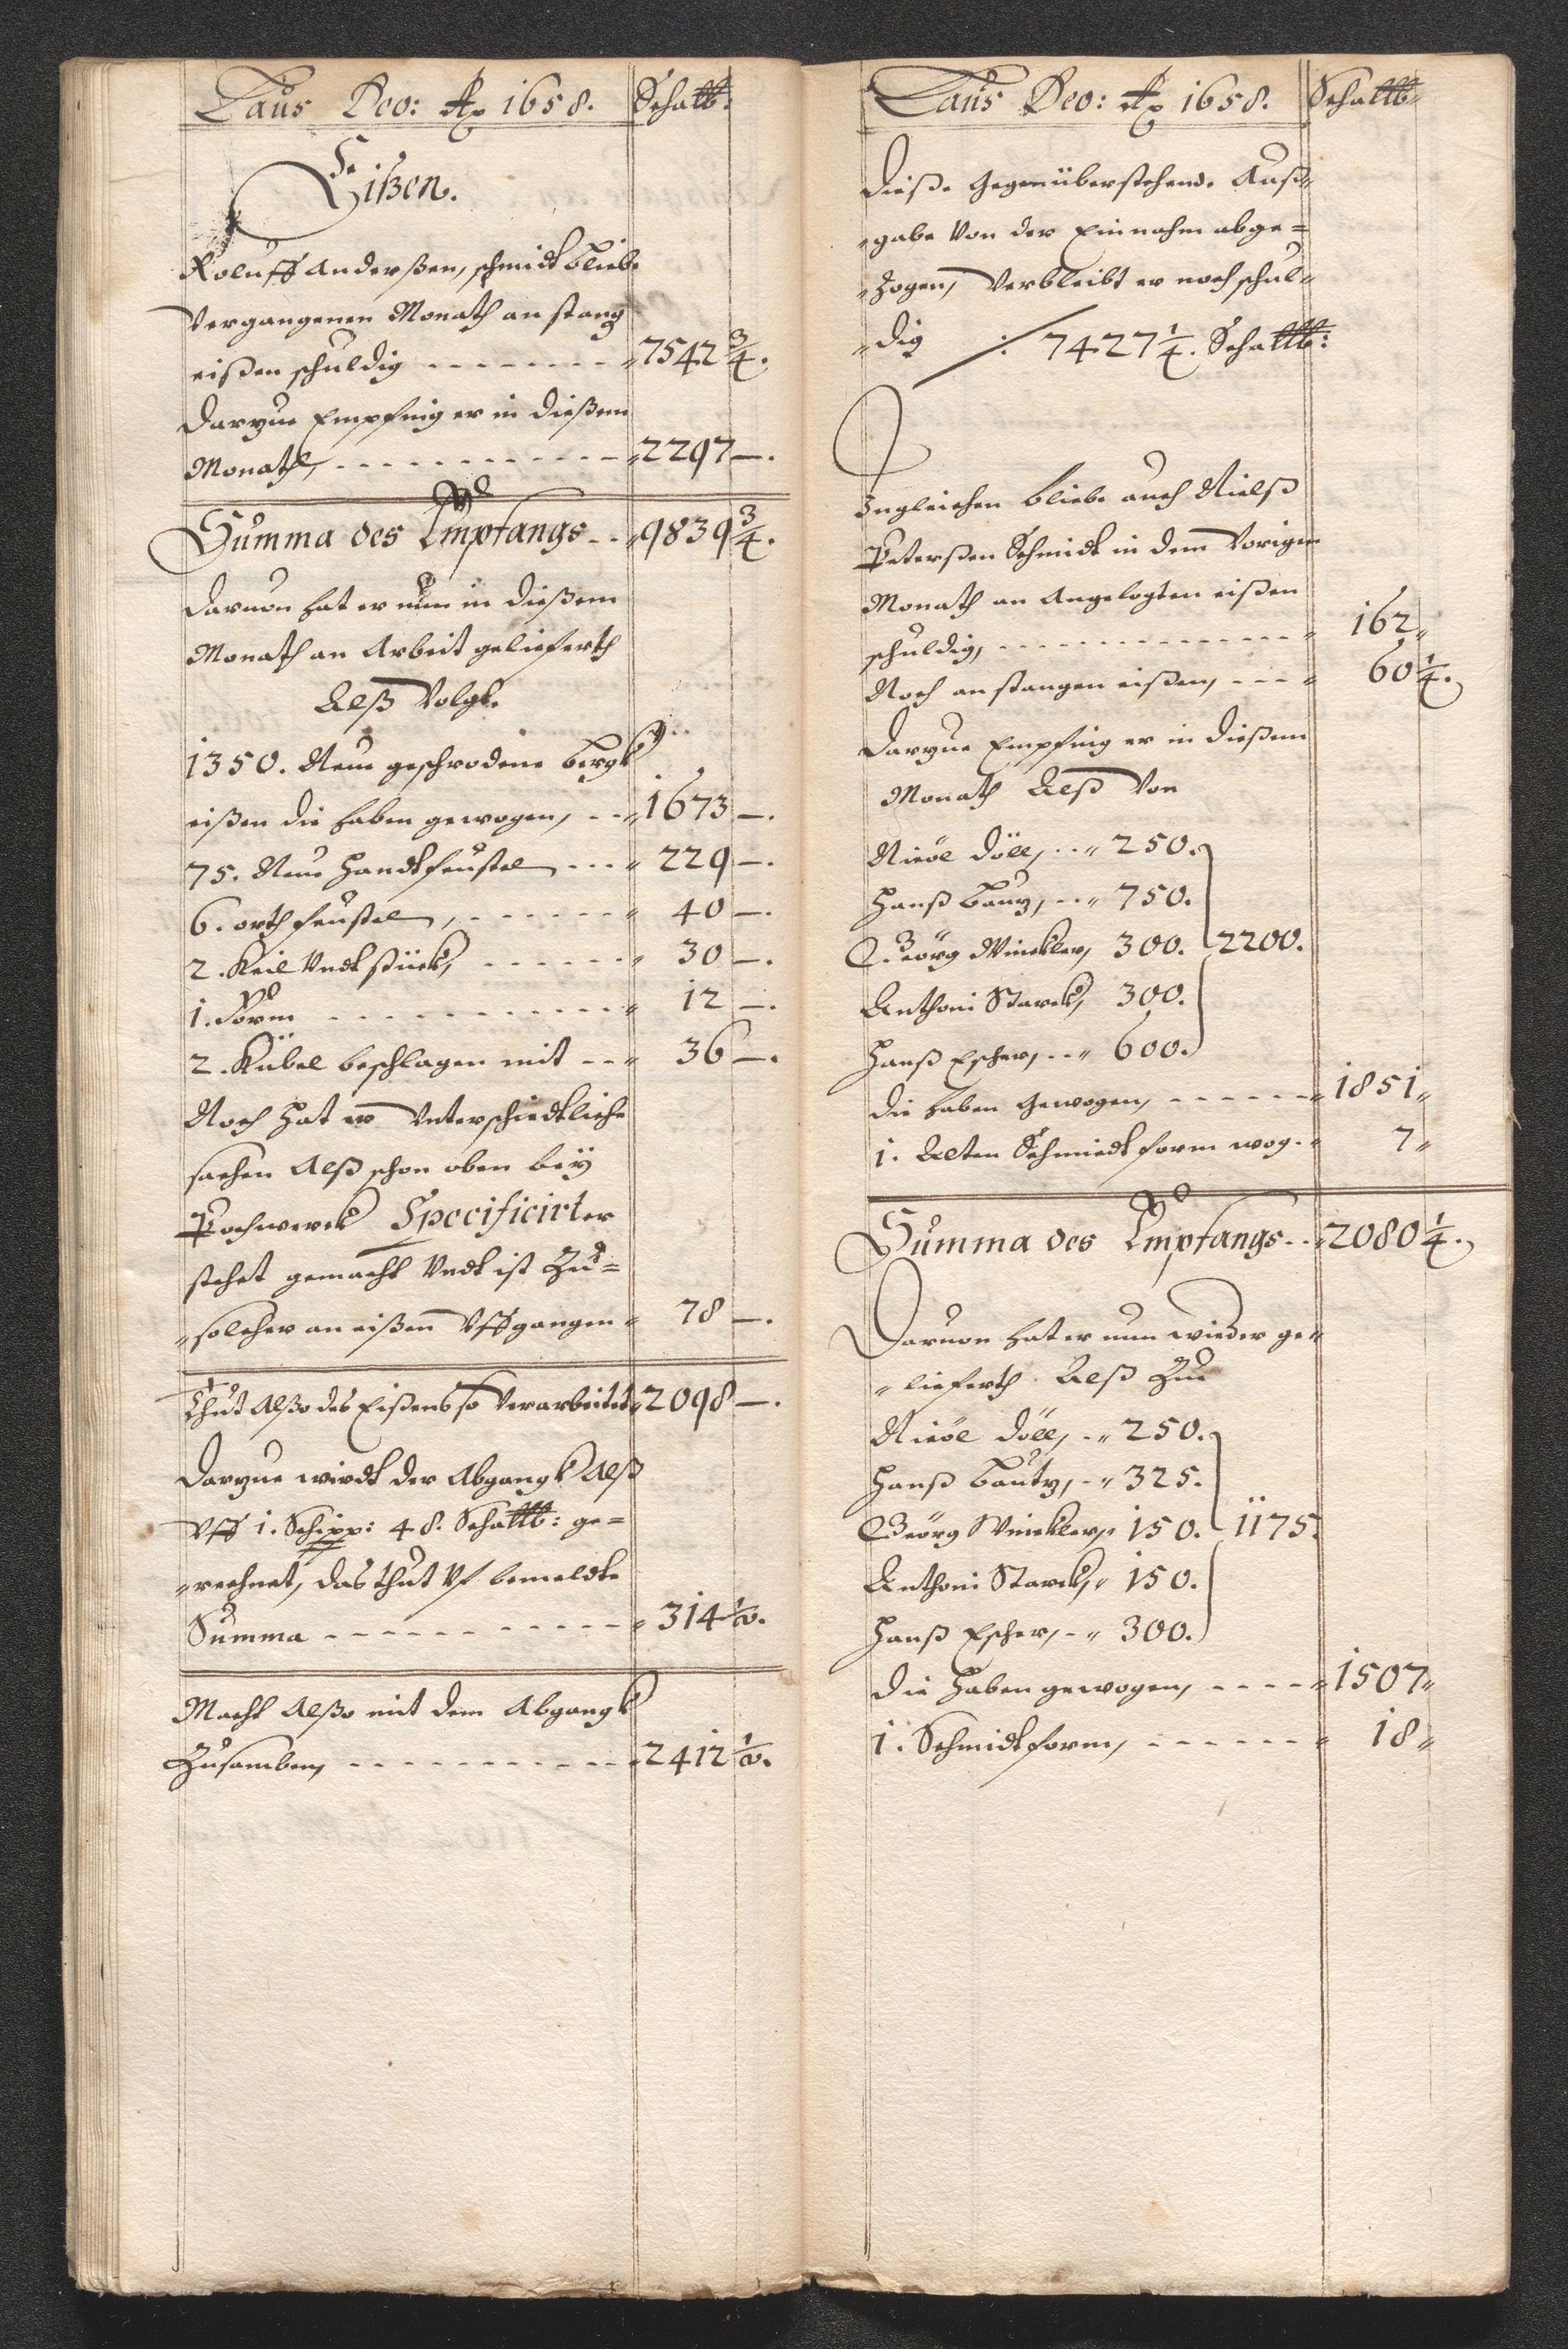 Laus Deo: Ao 1658. Schallb:
Eißen.
Roluff Anderßen, schmidt bliebe
Vergangenen Monath an stang
eißen schuldig - - - - - - - - 7542 3/4.
Darzue Empfing er in dießem
Monath, - - - - - - - - - - - 2297 —.
Summa des Empfangs - - 9839 3/4.
Daruon hat er nun in dießem
Monath an Arbeit geliefferth
Alß Volgt.
1350. Neue geschrodene bergk
eißen die haben gewogen, - - 1673 —.
75. Neue Handtfeustel - - - 229 —.
6. orth feustel, - - - - - - - 40 —.
2. Keil Vndt stück, - - - - - - 30 —.
1. Form - - - - - - - - - - - 12 —.
2. Kübel beschlagen mit - - - 36 —.
Noch Hat er Vnterschiedtliche
sachen Alß schon oben beÿ
Pochwerck Specificirt er
stehet gemacht Vndt ist Zu=
solcher an eißenn Vffgangen 78 —.
Thut Alßo des Eißens so Verarbeitet 2098 —.
Darzue wirdt der Abgangk Alß
Vff 1. Schipp: 48. Schallb: ge=
rechnet, das thut Vf bemeldte
Summa - - - - - - - - - - - 314 1/2.
Macht Alßo mit dem Abgangk
Zusamben, - - - - - - - - - - 2412 1/2.
Laus Deo: Ao 1658. Schallb.
Dieße Gegenüberstehende Auß=
gabe Von der Einnahm abge=
Zogen, Verbleibt er noch schul=
dig ⁒ 7427 1/4. Schallb:
Ingleichen bliebe auch Nielß
Peterßen Schmidt in dem Vorigen
Monath an Angelegten eißen
schuldig, - - - - - - - - - - - - 162
Noch an stangen eißen, - - - 60 1/4.
Darzue Empfing er in dießem
Monath Alß Von
Nicol Döll, - - 250.
Hanß Bautz, - - 750.
Georg Winckler, 300. 2200.
Anthoni Starck, 300.
Hanß Escher, - - 600.
die haben Gewogen, - - - - - - 1851
1. Alten Schmiedt form wog - 7
Summa des Empfangs - - 2080 1/4.
Daruon hat er nun wieder ge=
lieferth Alß Zue
Nicol Döll, - - 250.
Hanß Bautz, - - 325.
Georg Winckler, 150. 1175.
Anthoni Starck, 150.
Hanß Escher, - - 300.
die Haben gewogen, - - - - - 1507
1. Schmidtform, - - - - - - - 18